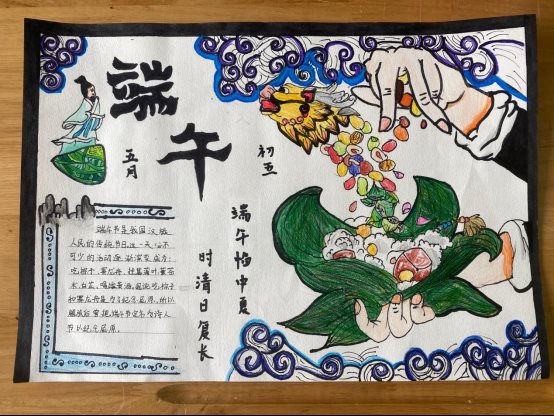 端午
五月
初五
端午临中夏
时清日复长
端午节是我国汉族
人民的传统节日,这一天必不
可少的活动逐渐演变成为:
吃粽子,赛龙舟,挂菖蒲叶薰苍
术,白芷,喝雄黄酒,据说吃粽子
和赛龙舟是为了纪念屈原,所以
解放后曾把端午节定名为诗人
节以纪念屈原。